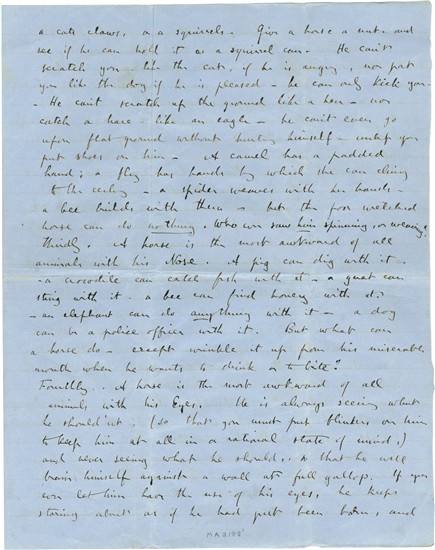 a cats claws, or a squirrels. Give a horse a nut, and
see if he can hold it as a squirrel can. He can't
scratch you - like the cat, if he is angry, nor pat
you like the dog if he is pleased - he can only kick you -
- He can't scratch up the ground like a hen - nor
catch a hare like an eagle - he can't even go
upon flat ground without hurting himself - unless you
put shoes on him - A camel has a padded
hand; a fly has hands by which she can cling
to the ceiling - a spider weaves with her hands -
a bee builds with them - but the poor wretched
horse can do nothing. Who ever saw him spinning, or weaving?
Thirdly. A horse is the most awkward of all
animals with his Nose. A pig can dig with it -
- a crocodile can catch fish with it - a gnat can
sting with it - a bee can find honey with it:
- an elephant can do anything with it - a dog
can be a police officer with it. But what can
a horse do - except wrinkle it up from his miserable
mouth when he wants to drink or to bite?
Fourthly. A horse is the most awkward of all
animals with his Eyes. He is always seeing what
he should'nt, (so that you must put blinkers on him
to keep him at all in a rational state of mind,)
and never seeing what he should, so that he will
brain himself against a wall at full gallop. If you
ever let him have the use of his eyes, he keeps
staring about as if he had just been born, and
MA 2188